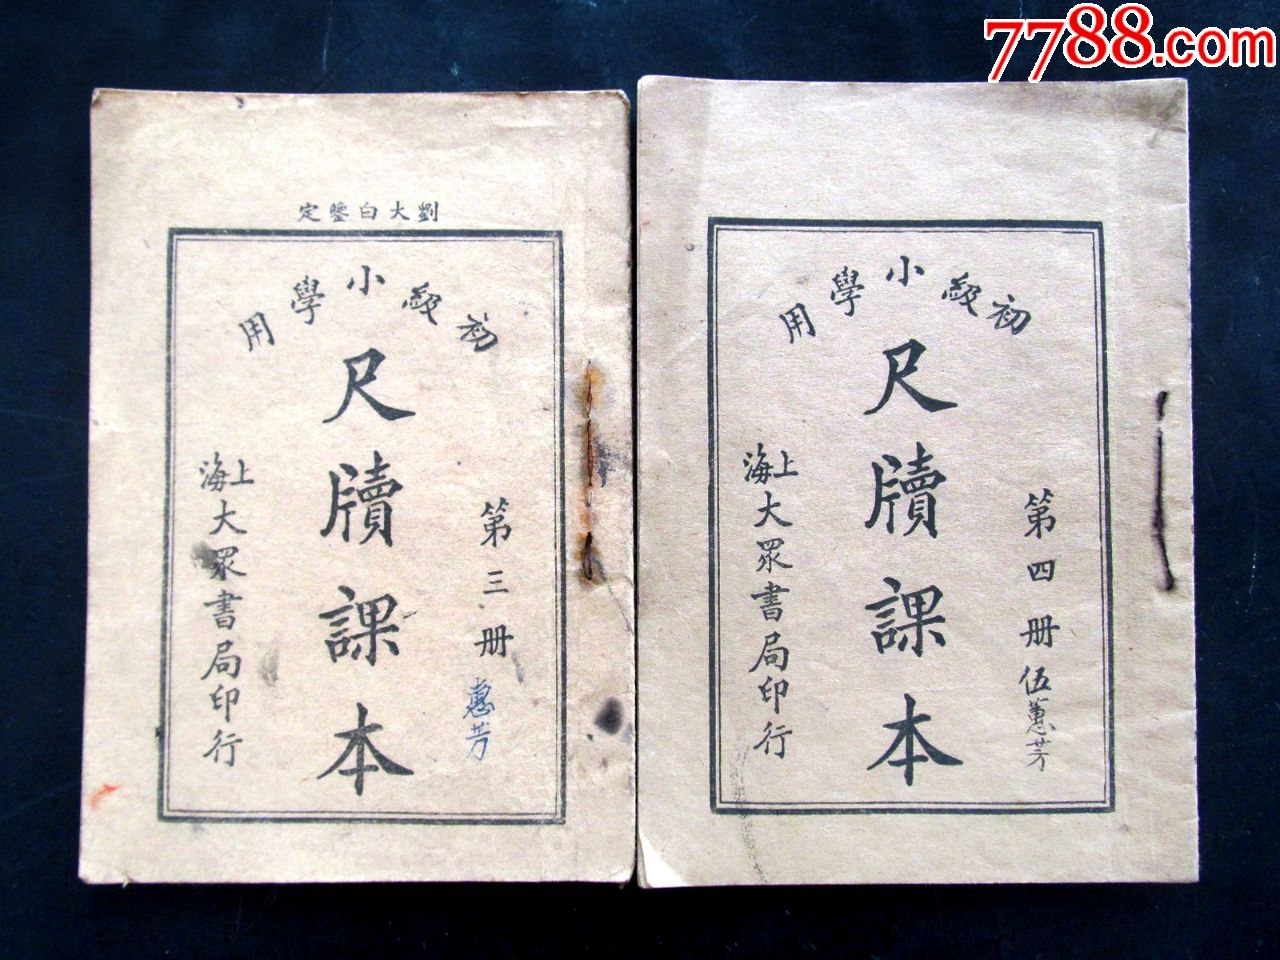 7788.com
劉大白鑒定
初級小學用
尺牘課本
第三册
惠芳
上海大眾書局印行
初級小學用
尺牘課本
第四册
伍蕙芳
上海大眾書局印行